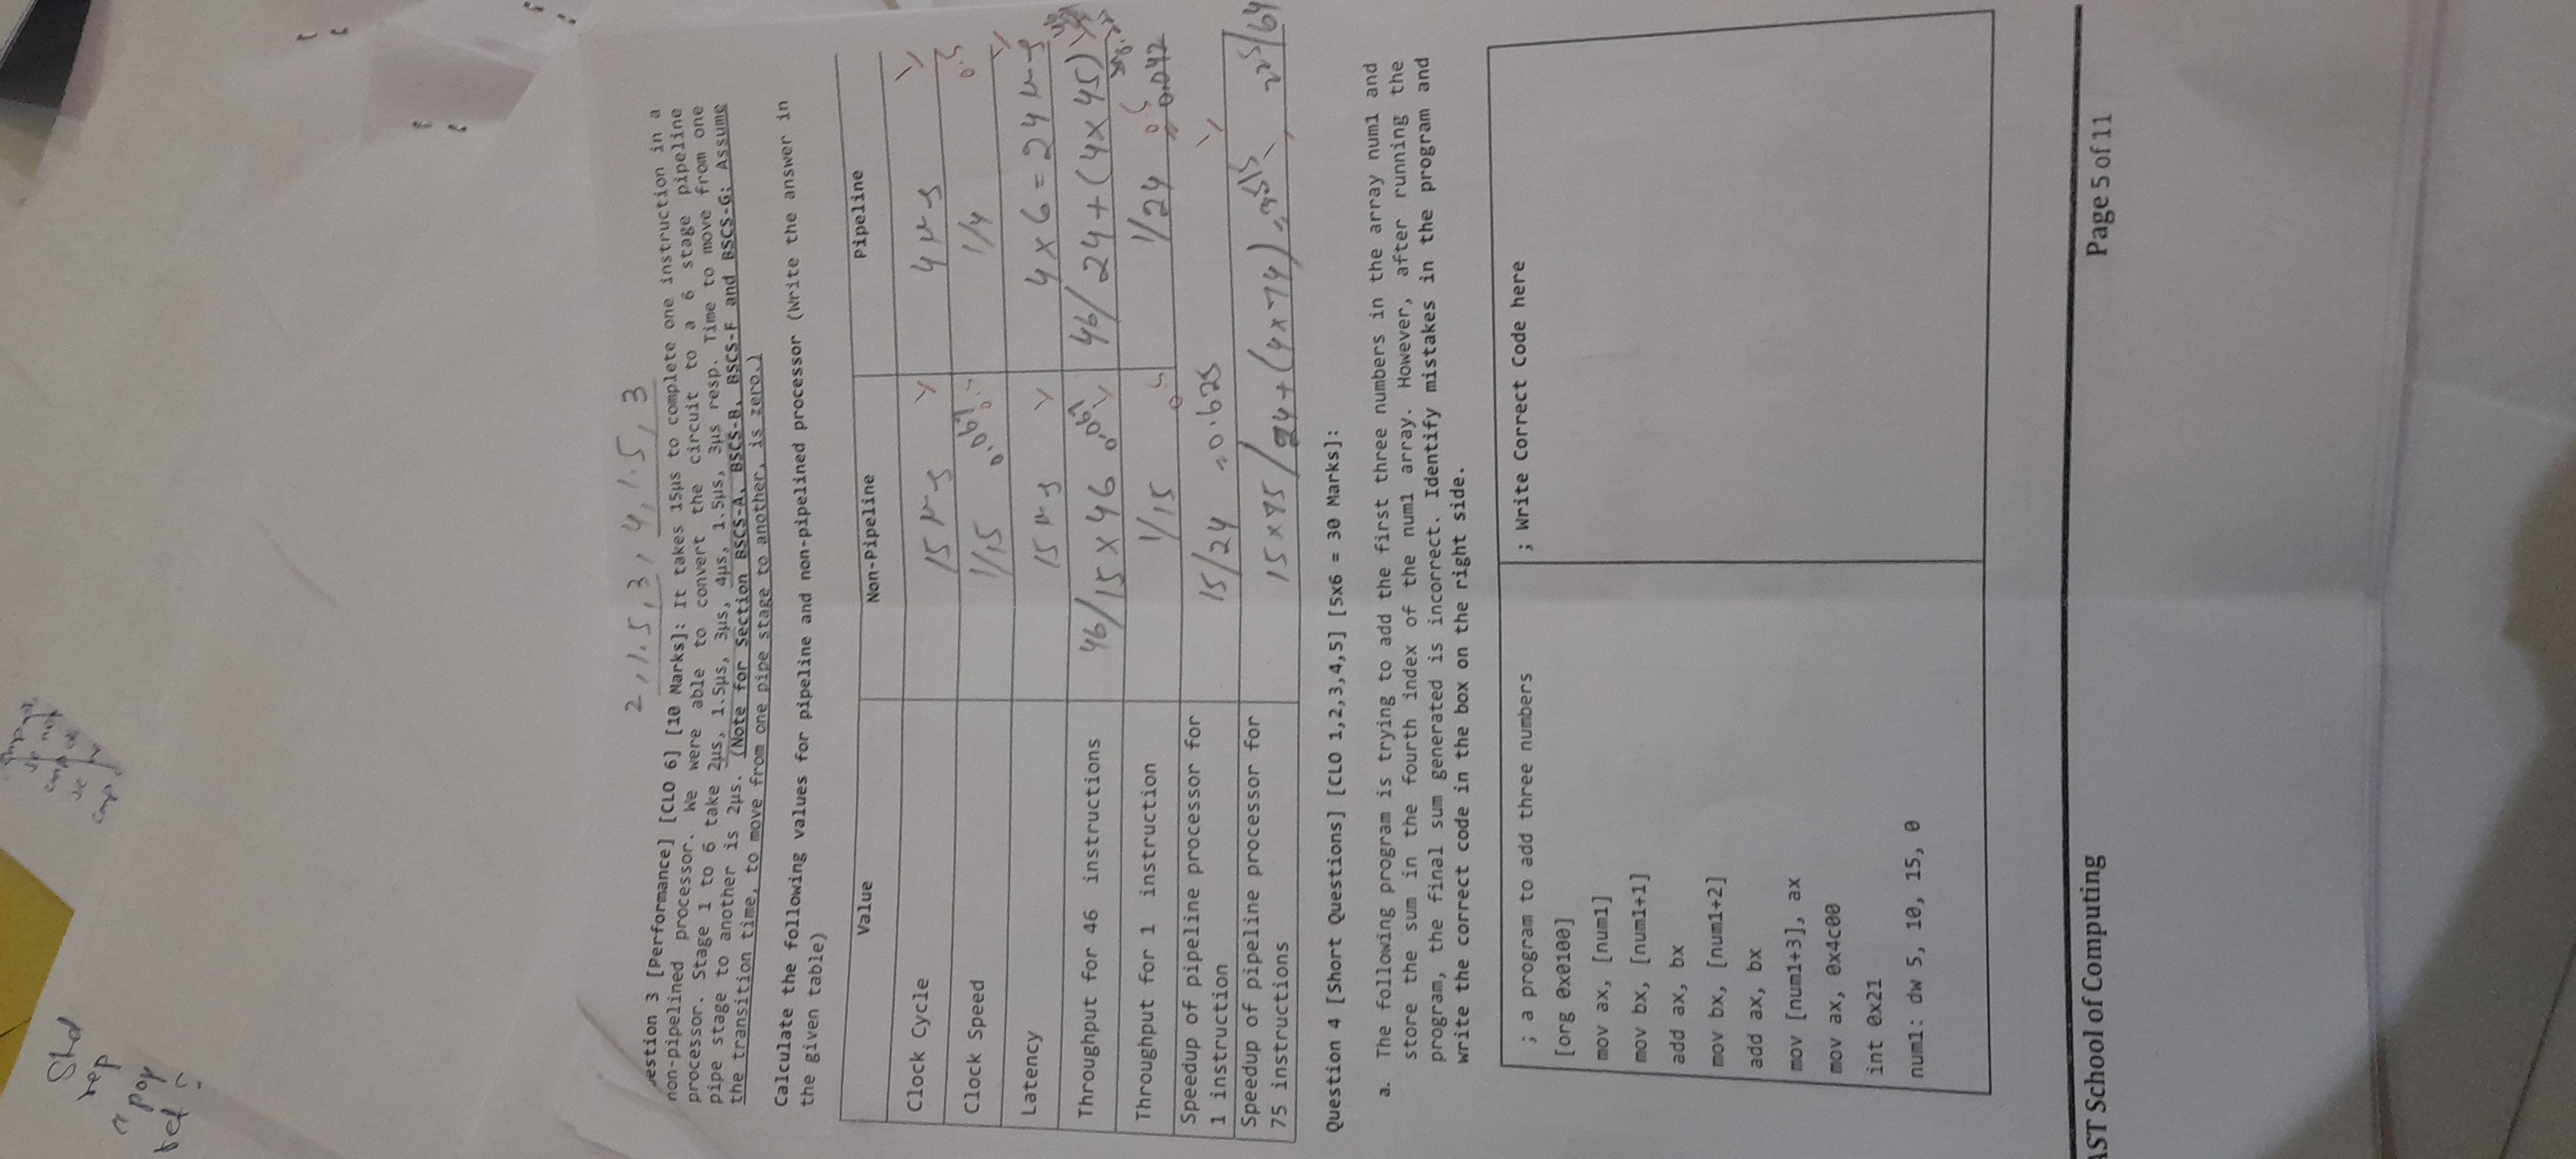 Std
rep
pop
ret
2, 1.5, 3, 4, 1.5, 3
estion 3 [Performance] [CLO 6] [10 Marks]: It takes 15µs to complete one instruction in a
non-pipelined processor. We were able to convert the circuit to a 6 stage pipeline
processor. Stage 1 to 6 take 2µs, 1.5µs, 3µs, 4µs, 1.5µs, 3µs resp. Time to move from one
pipe stage to another is 2µs. (Note for Section BSCS-A, BSCS-B, BSCS-F and BSCS-G: Assume
the transition time, to move from one pipe stage to another, is zero.)
Calculate the following values for pipeline and non-pipelined processor (Write the answer in
the given table)
Value Non-Pipeline Pipeline
Clock Cycle 15 µs 4 µs
Clock Speed 1/15 0.067 0.5 1/4 0.5
Latency 15 µs 4 x 6 = 24 µs
Throughput for 46 instructions 46/15 x 46 0.067 46/24+(4x45)
Throughput for 1 instruction 1/15 0.5 1/24 0.5 = 0.042
Speedup of pipeline processor for
1 instruction 15/24 = 0.625
Speedup of pipeline processor for
75 instructions 15x75/24+(4x74) = 3.515 225/64
Question 4 [Short Questions] [CLO 1,2,3,4,5] [5x6 = 30 Marks]:
a. The following program is trying to add the first three numbers in the array num1 and
store the sum in the fourth index of the num1 array. However, after running the
program, the final sum generated is incorrect. Identify mistakes in the program and
write the correct code in the box on the right side.
; a program to add three numbers
[org 0x0100]
mov ax, [num1]
mov bx, [num1+1]
add ax, bx
mov bx, [num1+2]
add ax, bx
mov [num1+3], ax
mov ax, 0x4c00
int 0x21
num1: dw 5, 10, 15, 0
; Write Correct Code here
AST School of Computing
Page 5 of 11